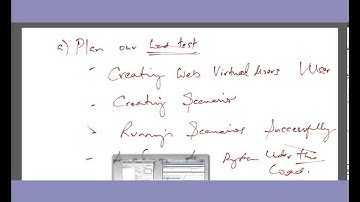 a) Plan our Load test
- Creating Web Virtual Users User
- Creating Scenario
> Running Scenarios Successfully
System Under This Load.